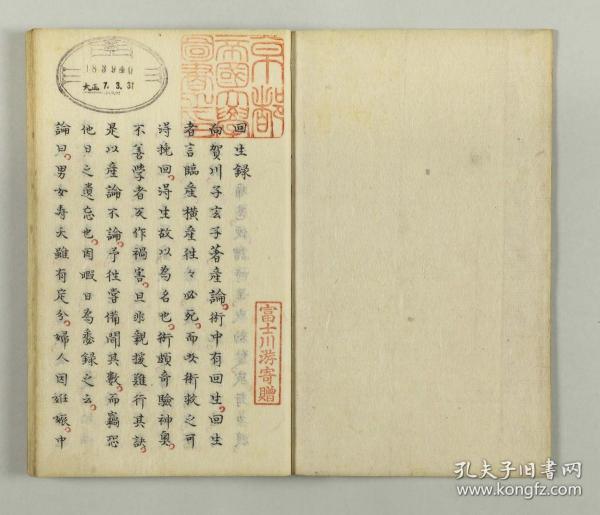 京都
帝國大學
圖書之印
188940
大正 7. 3. 31
富士川游寄贈
回生録
向賀川子玄子著產論術中有回生回生
者言臨產橫產徃々必死而以術救之可
得挽回得生故以為名也術頗奇驗神奥
不善學者反作禍害且非親授難行其訣
是以產論不論予徃嘗備聞其數而竊恐
他日之遺忘也因暇日為悉録之云
論曰男女壽夭雖有定分婦人因妊娠中
孔夫子旧书网
www.kongfz.com